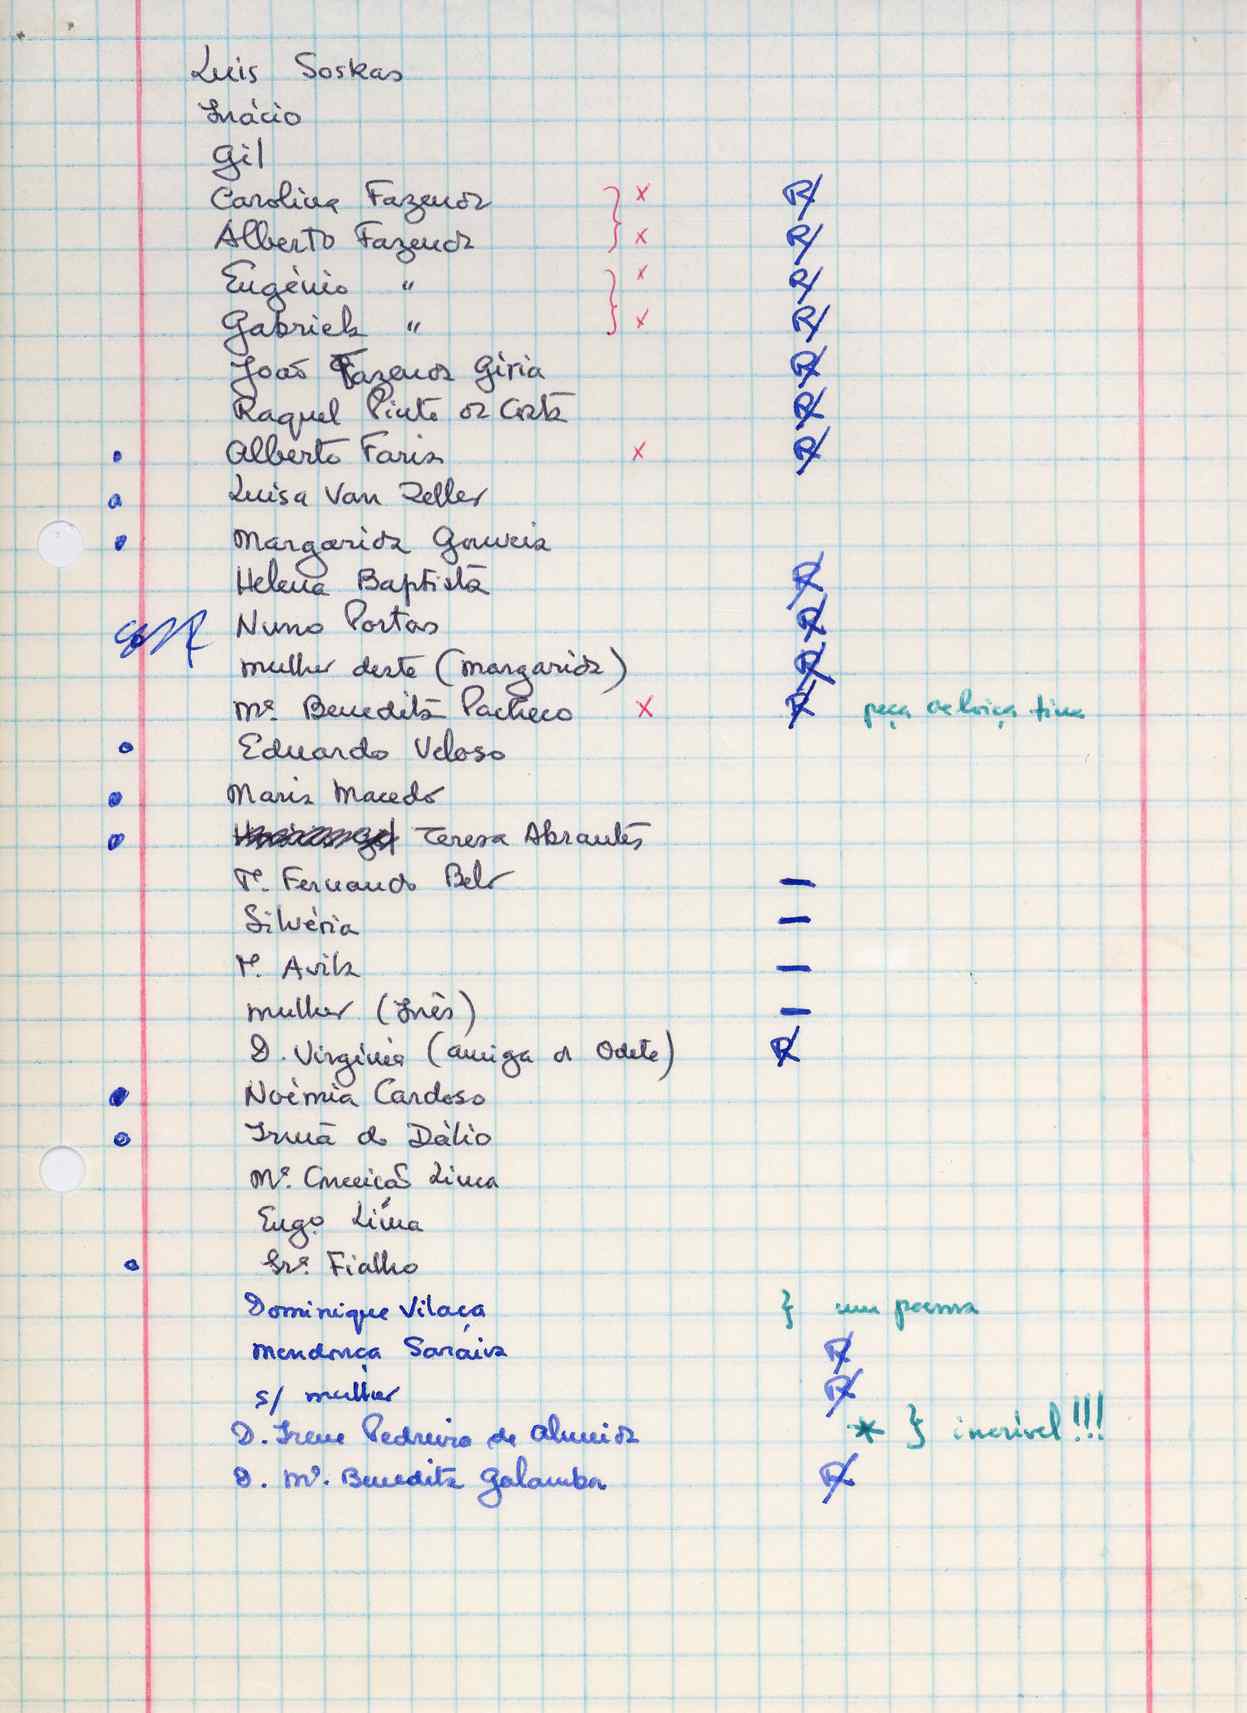 Luis Soskas
Inácio
Gil
Carolina Fazenda } x R
Alberto Fazenda } x R
Eugénio " } x R
Gabriela " } x R
João Fazenda Gíria R
Raquel Pinto da Costa R
Alberto Faria x R
Luisa Van Zeller
Margarida Gouveia
Helena Baptista R
Nuno Portas R
mulher deste (Margarida) R
Mª. Benedita Pacheco x R peça de loiça fina
Eduardo Veloso
Maria Macedo
Teresa Abrantes
Fernando Belo —
Silvéria —
Avila —
mulher (Inês) —
D. Virginia (amiga da Odete) R
Noémia Cardoso
Irmã do Dálio
Mª. Conceição Lima
Engº. Lima
Srª. Fialho
Dominique Vilaça } um poema
Mendonça Saráiva R
s/ mulher R
D. Irene Pedreiro de Almeida * } incrível!!!
D. Mª. Benedita Galamba R